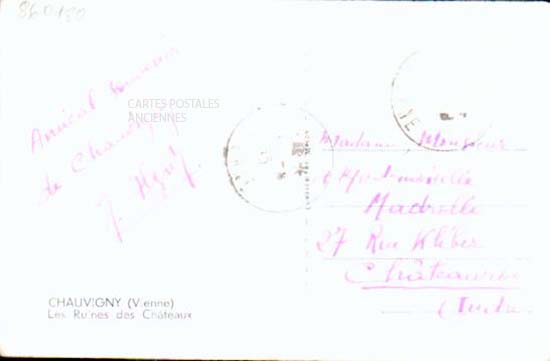 860180
Amical souvenir
de Chauvigny
CARTES POSTALES
ANCIENNES
Madame, Monsieur
et Mademoiselle
27 Rue Kléber
Châteauroux
(Indre)
CHAUVIGNY (Vienne)
Les Ruines des Châteaux